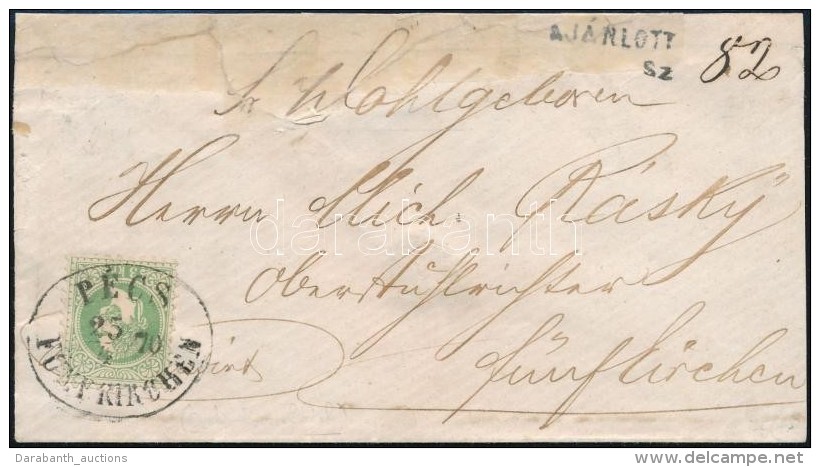 AJÁNLOTT
Sz 82
Sr Wohlgeboren
Herrn Mich. Rásky
Oberstuhlrichter
Fünfkirchen
PÉCS
25
4 70
FÜNFKIRCHEN
darabanth
Darabanth_auctions
www.delcampe.net